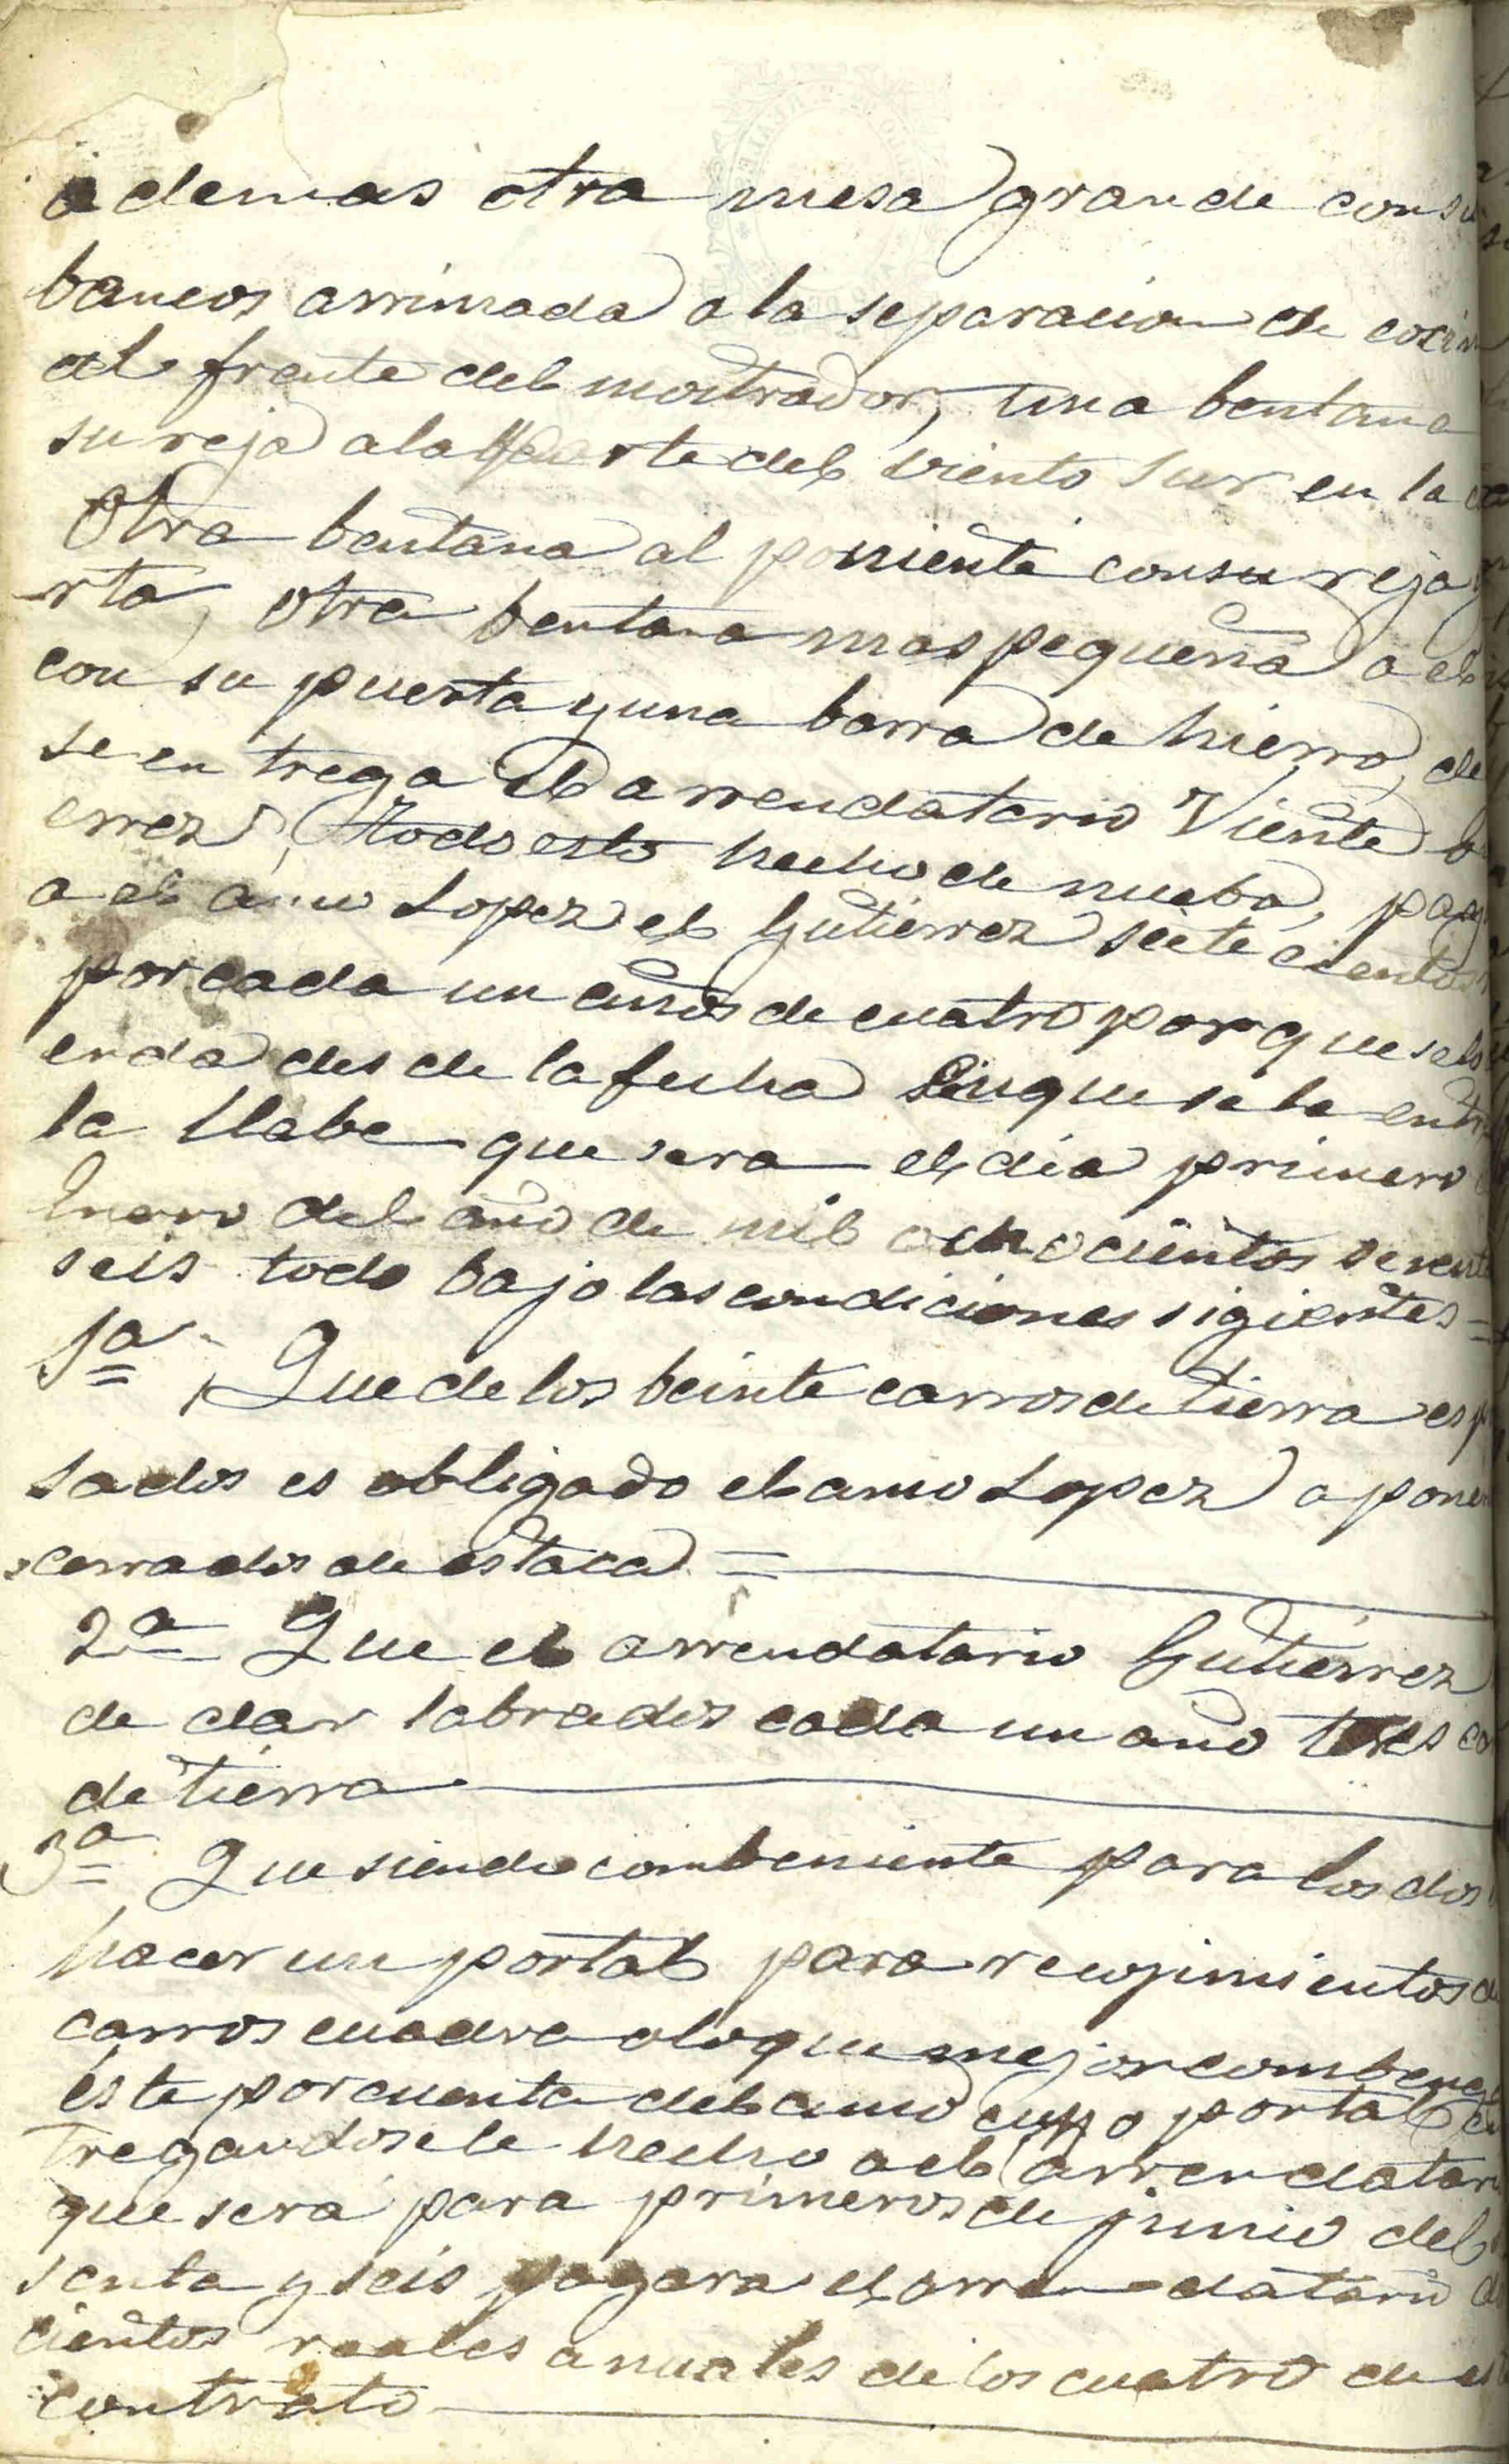 ademas otra mesa grande con su
bancos arrimada a la separacion de cocin
al frente del mostrador, una bentana
su reja a la parte del viento sur en la
Otra bentana al poniente con su reja y
rta, otra bentana mas pequeña a el
con su puerta y una barra de hierro, de
se entrega el arrendatario Viente
errez, todo esto hecho de nuebo, pag
a el amo Lopez el Gutierrez siete cientos
por cada un años de cuatro por que se le
enda des de la fecha en que se le entr
la llabe que sera el dia primero
Enero del año de mil ochocientos sesenta
seis todo bajo las condiciones sigientes =
1a Que de los beinte carros de tierra esp
sados es obligado el amo Lopez a poner
cerrados de estaca =
2a Que el arrendatario Gutierrez
de dar labrados cada un año tres ca
de tierra
3a Que siendo combeniente para los dos
hacer un portal para recojimientos de
carros cuadra o lo que mejor combenga
éste por cuenta del amo cuyo portal en
tregandosele hecho a el arrendatari
que será para primeros de junio del
senta y seis pagara el arrendatario
cientos reales anuales de los cuatro de es
contrato